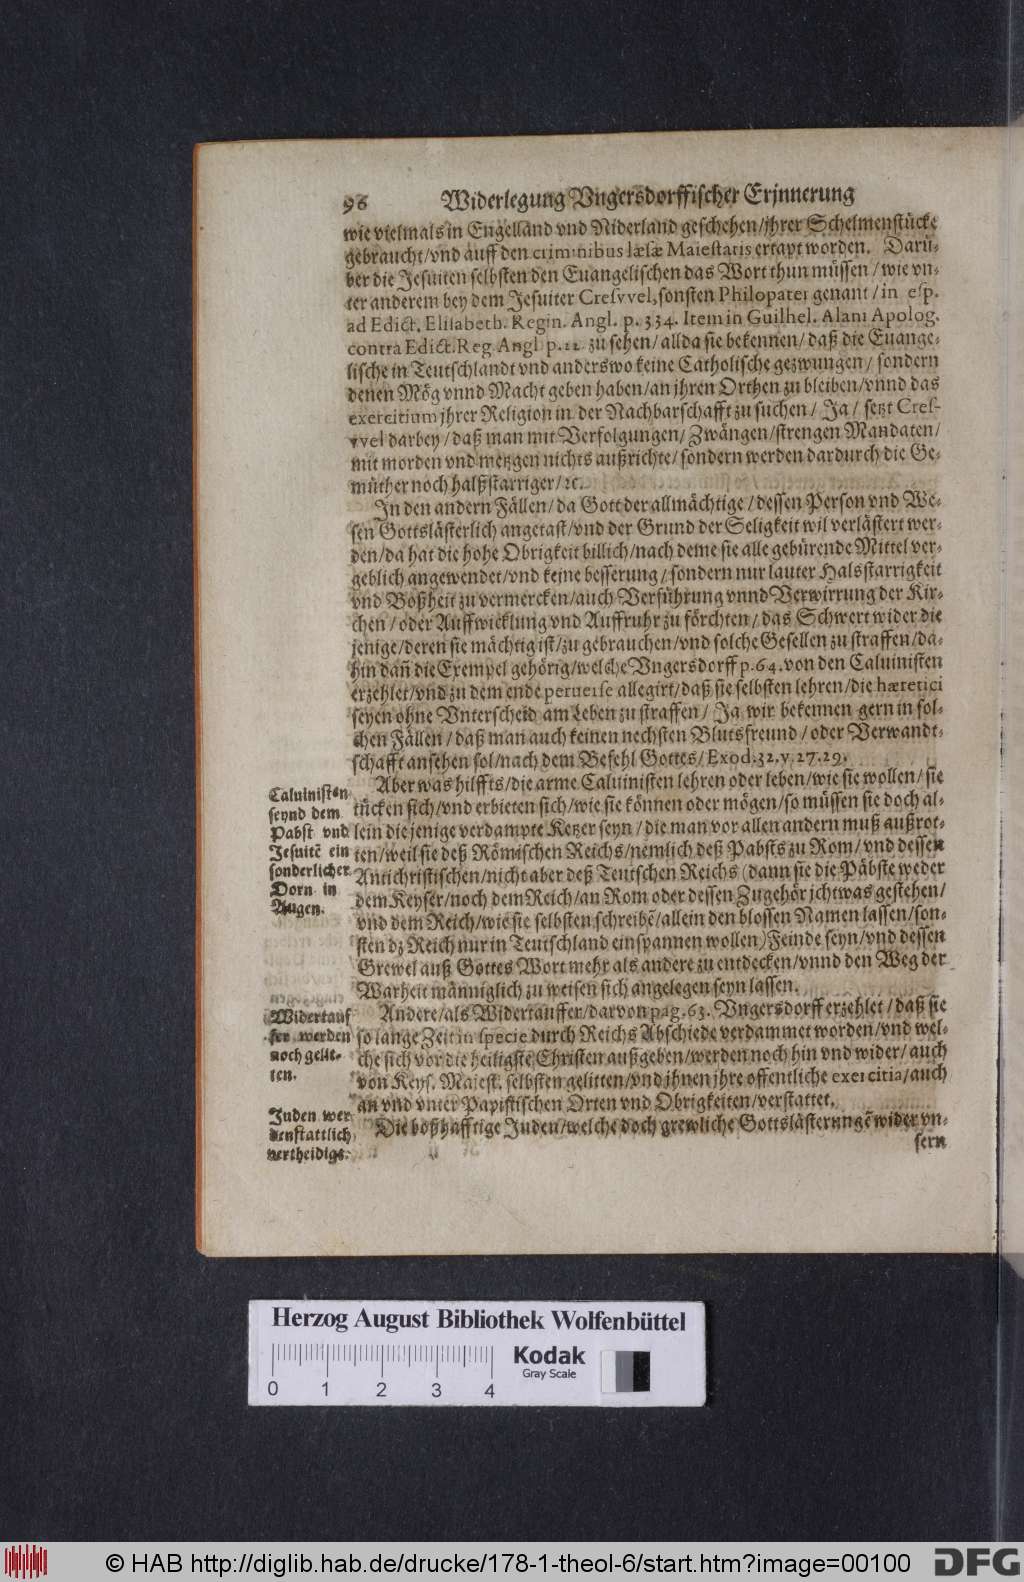 96 Widerlegung Vngersdorffischer Erjnnerung
wie vielmals in Engelland vnd Niderland geschehen/jhrer Schelmenstücke
gebraucht/vnd auff den criminibus læsæ Maiestatis ertapt worden. Darü-
ber die Jesuiten selbsten den Euangelischen das Wort thun müssen/wie vn-
ter anderem bey dem Jesuiter Cresvvel, sonsten Philopater genant/in resp.
ad Edict. Elisabeth. Regin. Angl. p. 334. Item in Guilhel. Alani Apolog.
contra Edict. Reg. Angl p. 12 zu sehen/allda sie bekennen/daß die Euange-
lische in Teutschlandt vnd anderswo keine Catholische gezwungen/sondern
denen Mög vnnd Macht geben haben/an jhren Orthen zu bleiben/vnnd das
exercitium jhrer Religion in der Nachbarschafft zu suchen/Ja/setzt Cres-
vvel darbey/daß man mit Verfolgungen/Zwängen/strengen Mandaten/
mit morden vnd metzgen nichts außrichte/sondern werden dardurch die Ge-
müther noch halßstarriger/ꝛc.
In den andern Fällen/da Gott der allmächtige/dessen Person vnd We-
sen Gottslästerlich angetast/vnd der Grund der Seligkeit wil verlästert wer-
den/da hat die hohe Obrigkeit billich/nach deme sie alle gebürende Mittel ver-
geblich angewendet/vnd keine besserung/sondern nur lauter Halsstarrigkeit
vnd Boßheit zu vermercken/auch Verführung vnnd Verwirrung der Kir-
chen/oder Auffwicklung vnd Auffruhr zu förchten/das Schwert wider die
jenige/deren sie mächtig ist/zu gebrauchen/vnd solche Gesellen zu straffen/da-
hin dañ die Exempel gehörig/welche Vngersdorff p. 64. von den Caluinisten
erzehlet/vnd zu dem ende peruerse allegirt/daß sie selbsten lehren/die hæretici
seyen ohne Vnterscheid am Leben zu straffen/Ja wir bekennen gern in sol-
chen Fällen/daß man auch keinen nechsten Blutsfreund/oder Verwandt-
schafft ansehen sol/nach dem Befehl Gottes/Exod. 32. v. 27. 29.
Aber was hilffts/die arme Caluinisten lehren oder leben/wie sie wollen/sie
tücken sich/vnd erbieten sich/wie sie können oder mögen/so müssen sie doch al-
lein die jenige verdampte Ketzer seyn/die man vor allen andern muß außrot-
ten/weil sie deß Römischen Reichs/nemlich deß Pabsts zu Rom/vnd dessen
Antichristischen/nicht aber deß Teutschen Reichs (dann sie die Päbste weder
dem Keyser/noch dem Reich/an Rom oder dessen Zugehör jchtwas gestehen/
vnd dem Reich/wie sie selbsten schreibē/allein den blossen Namen lassen/son-
sten dz Reich nur in Teutschland einspannen wollen) Feinde seyn/vnd dessen
Grewel auß Gottes Wort mehr als andere zu entdecken/vnnd den Weg der
Warheit männiglich zu weisen sich angelegen seyn lassen.
Caluinisten
seynd dem
Pabst vnd
Jesuitē ein
sonderlicher
Dorn in
Augen.
Andere/als Widertäuffer/darvon pag. 63. Vngersdorff erzehlet/daß sie
so lange Zeit in specie durch Reichs Abschiede verdammet worden/vnd wel-
che sich vor die heiligstē Christen außgeben/werden noch hin vnd wider/auch
von Keys. Majest. selbsten gelitten/vnd jhnen jhre offentliche exercitia/auch
an vnd vnter Papistischen Orten vnd Obrigkeiten/verstattet.
Widertauf
fer werden
noch gelit-
ten.
Die boßhafftige Juden/welche doch grewliche Gottslästerungē wider vn-
sern
Juden wer
den stattlich
vertheidigt.
Herzog August Bibliothek Wolfenbüttel
Kodak
Gray Scale
0 1 2 3 4
© HAB http://diglib.hab.de/drucke/178-1-theol-6/start.htm?image=00100
DFG